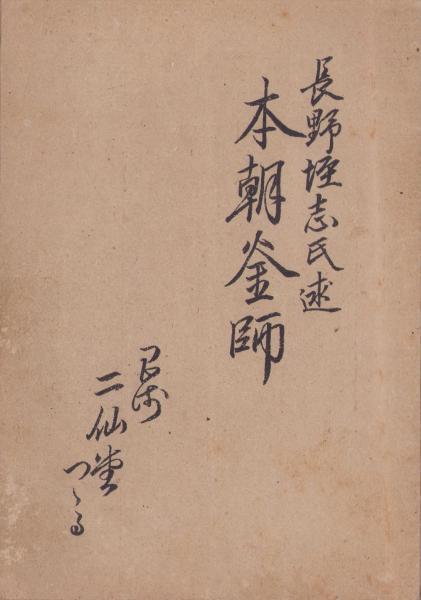 長野垤志氏述
本朝釜師
二仙堂
つゝる